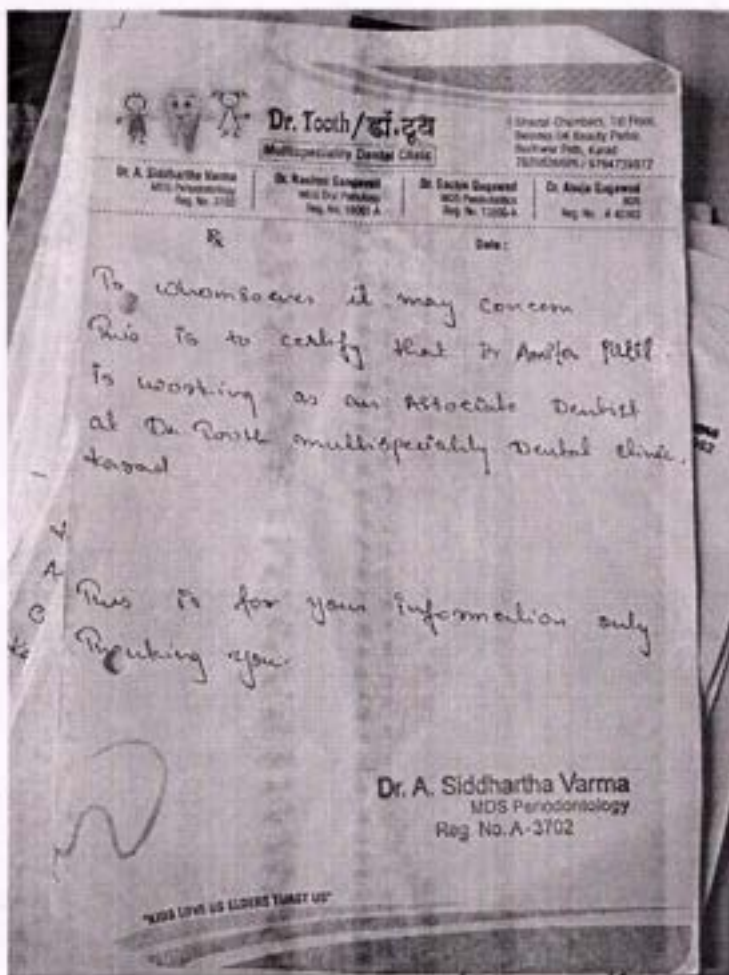 Dr. Tooth/डॉ.टूथ
Multispeciality Dental Clinic
Dr. A. Siddhartha Varma
MDS Periodontology
Reg. No. 3702
Dr. Sachin Gugawad
Reg. No.
Dr. Anuja Gugawad
Reg. No.
Rx
Date :
To, whomsoever it may concern
This is to certify that Dr Patil.
is working as an Associate Dentist
at Dr. Tooth multispeciality Dental clinic.
Karad
This is for your information only
Thanking you.
Dr. A. Siddhartha Varma
MDS Periodontology
Reg. No. A-3702
"KIDS LOVE US ELDERS TRUST US"